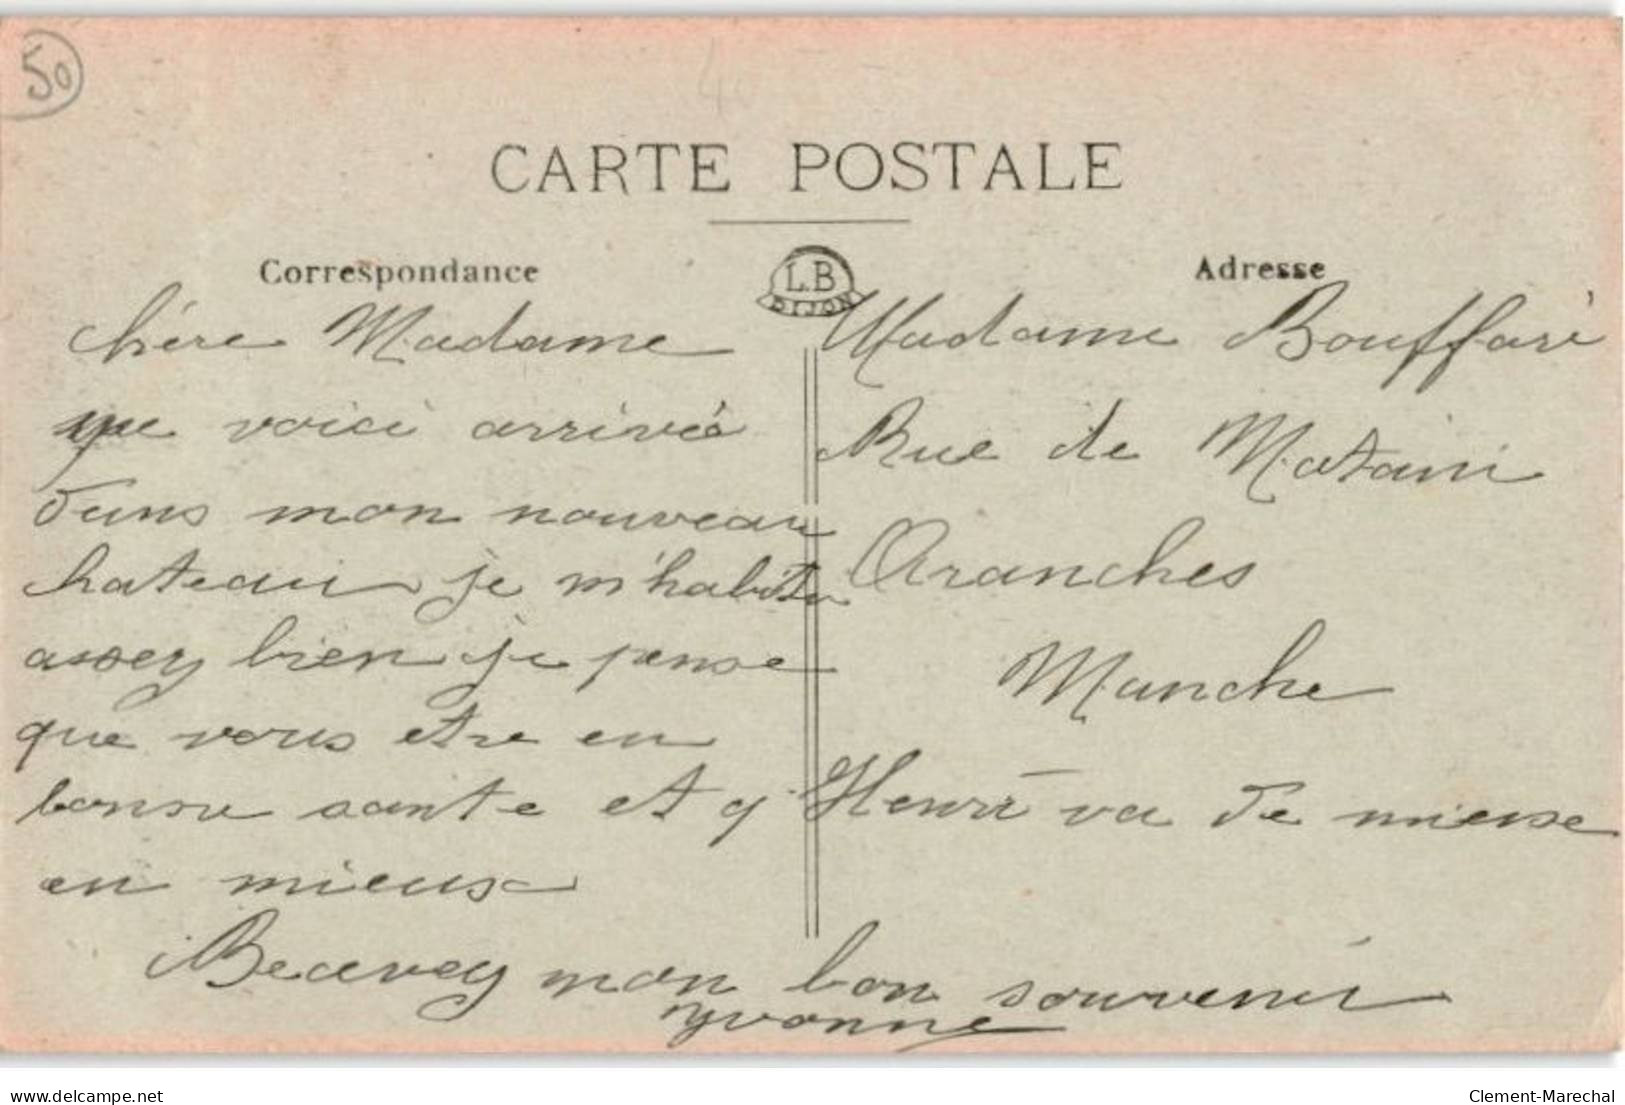 50
40
CARTE POSTALE
Correspondance
L.B
DIJON
Adresse
chère Madame
voici arrivée
dans mon nouveau
chateau je m'habitu
assez bien je pense
que vous etre en
bonne sante et q'
Henri va de mieuse
en mieuse
Madame Bouffaré
Rue de
Avranches
Manche
Recevez mon bon souvenir
Yvonne
delcampe.net
Clement-Marechal